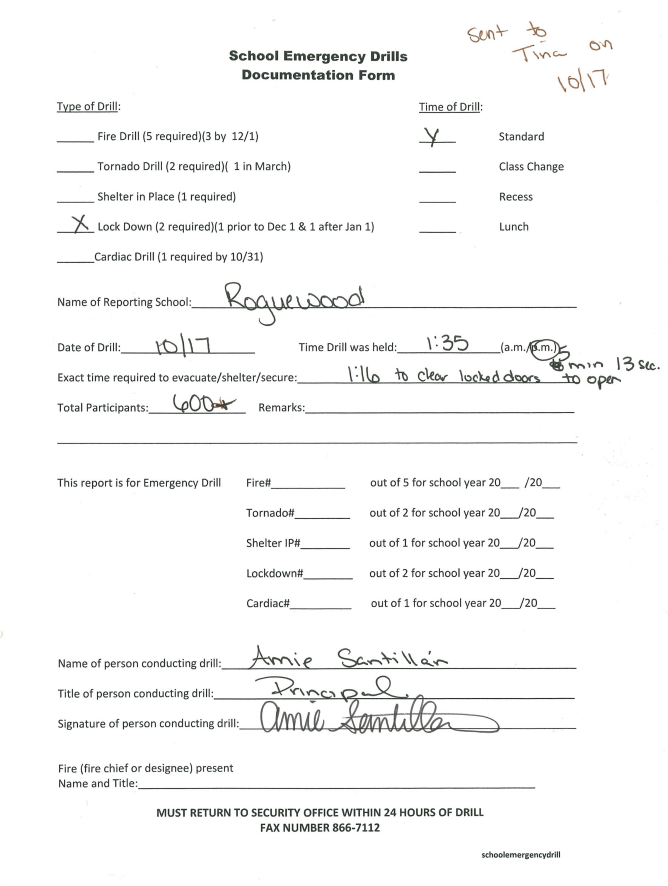 Sent to
Tina on
10/17
School Emergency Drills
Documentation Form
Type of Drill: Time of Drill:
______ Fire Drill (5 required)(3 by 12/1) Y Standard
______ Tornado Drill (2 required)( 1 in March) ______ Class Change
______ Shelter in Place (1 required) ______ Recess
X Lock Down (2 required)(1 prior to Dec 1 & 1 after Jan 1) ______ Lunch
______Cardiac Drill (1 required by 10/31)
Name of Reporting School: Roguewood
Date of Drill: 10/17 Time Drill was held: 1:35 (a.m./p.m.)
5 min 13 sec.
Exact time required to evacuate/shelter/secure: 1:16 to clear locked doors to open
Total Participants: 600 Remarks:
This report is for Emergency Drill Fire#__________ out of 5 for school year 20___ /20___
Tornado#________ out of 2 for school year 20___/20___
Shelter IP#________ out of 1 for school year 20___/20___
Lockdown#________ out of 2 for school year 20___/20___
Cardiac#__________ out of 1 for school year 20___/20___
Name of person conducting drill: Amie Santillán
Title of person conducting drill: Principal
Signature of person conducting drill: Amie Santillan
Fire (fire chief or designee) present
Name and Title:
MUST RETURN TO SECURITY OFFICE WITHIN 24 HOURS OF DRILL
FAX NUMBER 866-7112
schoolemergencydrill